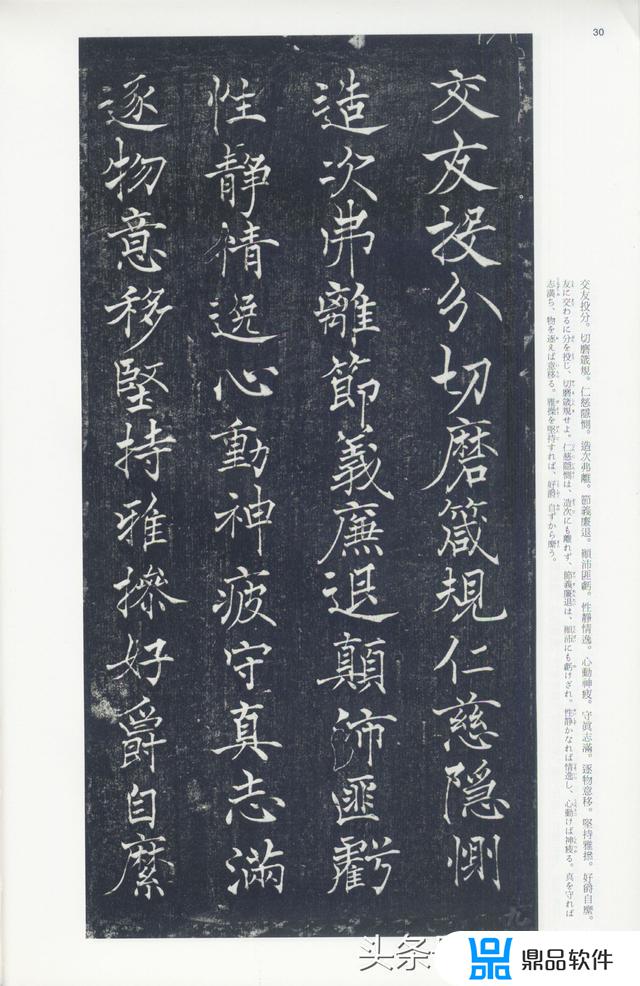 30
交友投分切磨箴規仁慈隠惻
造次弗離節義廉退顛沛匪虧
性靜情逸心動神疲守真志滿
逐物意移堅持雅操好爵自縻
交友投分。切磨箴規。仁慈隱惻。造次弗離。節義廉退。顛沛匪虧。性靜情逸。心動神疲。守眞志滿。逐物意移。堅持雅操。好爵自縻。
友に交わるに分を投じ、切磨箴規せよ。仁慈隠惻は、造次にも離れず、節義廉退は、顛沛にも虧けざれ。性静かなれば情逸し、心動けば神疲る。真を守れば
志満ち、物を逐えば意移る。雅操を堅持すれば、好爵自ずから縻う。
九
头条
鼎品软件